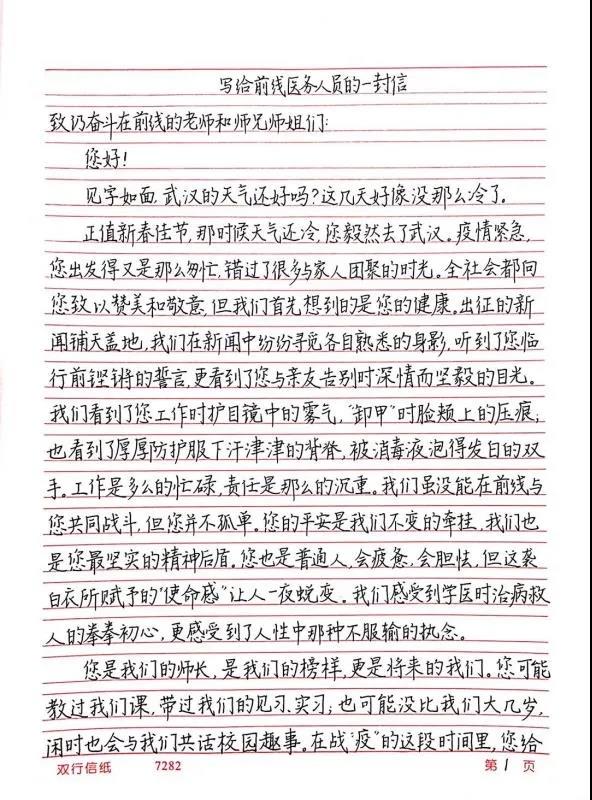 写给前线医务人员的一封信
致仍奋斗在前线的老师和师兄师姐们:
您好!
见字如面,武汉的天气还好吗?这几天好像没那么冷了。
正值新春佳节,那时候天气还冷,您毅然去了武汉。疫情紧急,
您出发得又是那么匆忙,错过了很多与家人团聚的时光。全社会都向
您致以赞美和敬意,但我们首先想到的是您的健康。出征的新
闻铺天盖地,我们在新闻中纷纷寻觅各自熟悉的身影,听到了您临
行前铿锵的誓言,更看到了您与亲友告别时深情而坚毅的目光。
我们看到了您工作时护目镜中的雾气,“卸甲”时脸颊上的压痕;
也看到了厚厚防护服下汗津津的背脊,被消毒液泡得发白的双
手。工作是多么的忙碌,责任是那么的沉重。我们虽没能在前线与
您共同战斗,但您并不孤单。您的平安是我们不变的牵挂,我们也
是您最坚实的精神后盾。您也是普通人,会疲惫,会胆怯,但这袭
白衣所赋予的“使命感”让人一夜蜕变。我们感受到学医时治病救
人的拳拳初心,更感受到了人性中那种不服输的执念。
您是我们的师长,是我们的榜样,更是将来的我们。您可能
教过我们课,带过我们的见习、实习;也可能没比我们大几岁,
闲时也会与我们共话校园趣事。在战“疫”的这段时间里,您给
双行信纸 7282 第1页